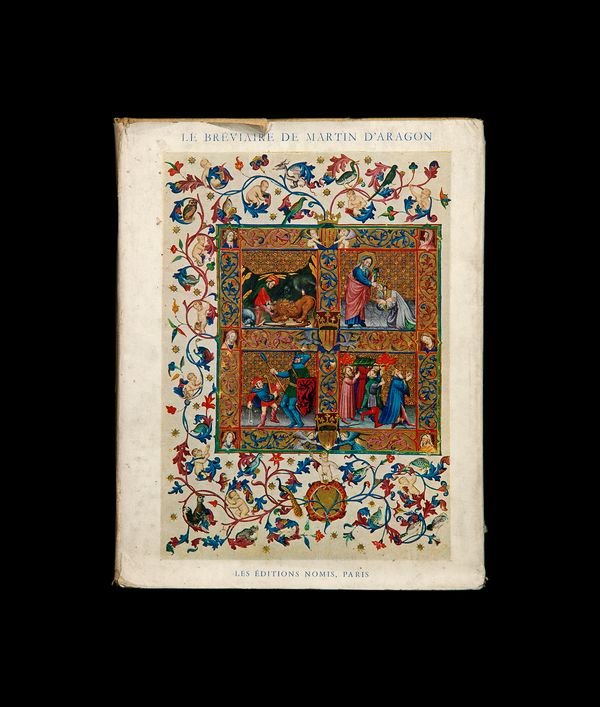 LE BRÉVIAIRE DE MARTIN D'ARAGON
LES ÉDITIONS NOMIS, PARIS